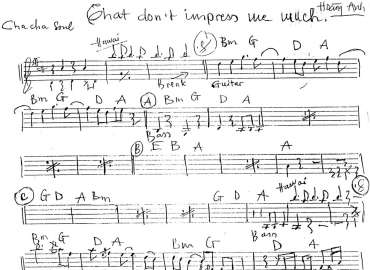 That don't impress me much. Hoàng Anh
Cha cha Soul
Hawai Bm G D A
Break Guitar
Bm G D A A Bm G D A
Bass
B E B A A
C G D A Bm G D A Hawai
Bm G D A Bm G D A
Bass